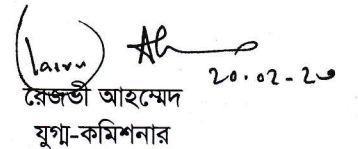 20.02-20
রেজভী আহম্মেদ
যুগ্ম-কমিশনার